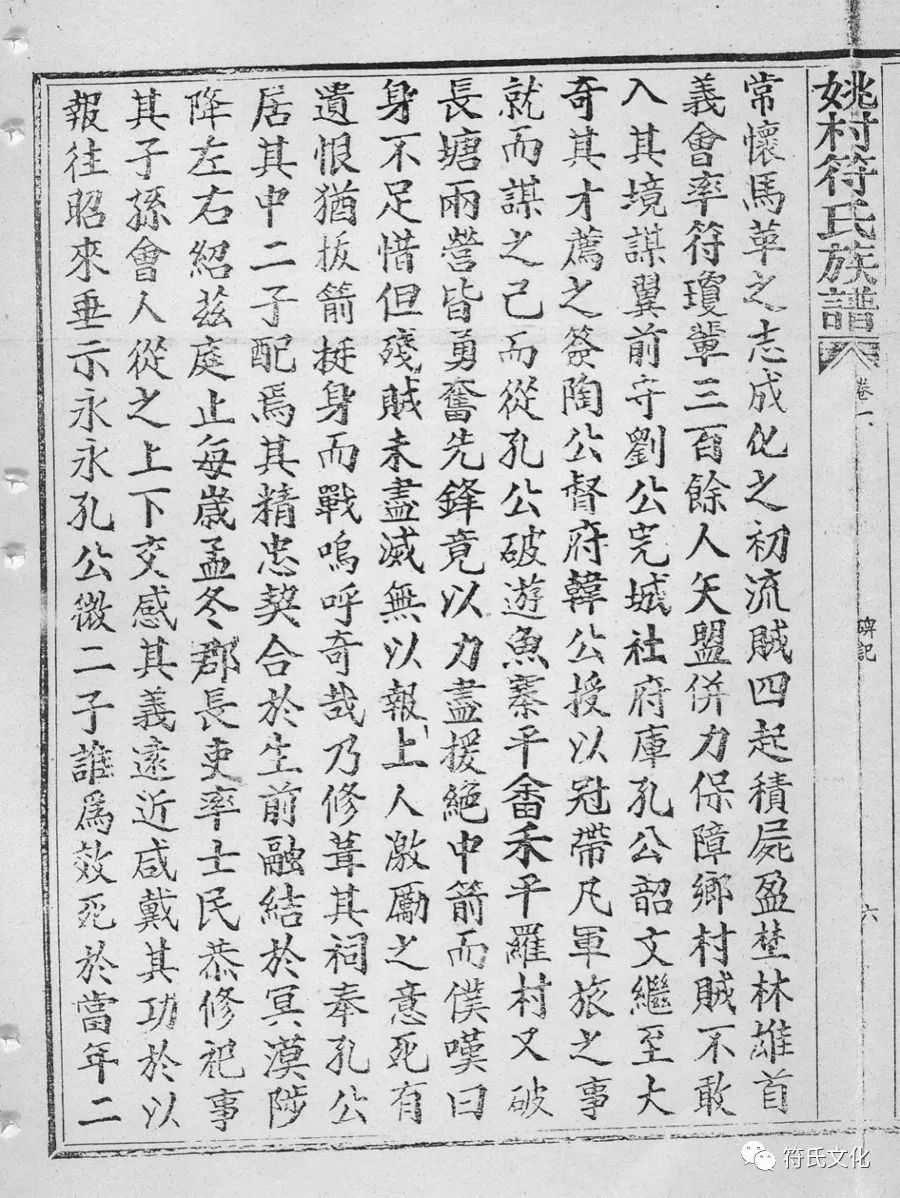 姚村符氏族譜
卷一
碑記
六
常懷馬革之志成化之初流賊四起積屍盈埜林雄首
義會率符瓊輩三百餘人矢盟併力保障鄉村賊不敢
入其境謀翼前守劉公完城社府庫孔公韶文繼至大
奇其才薦之僉陶公督府韓公授以冠帶凡軍旅之事
就而謀之己而從孔公破遊魚寨平畬禾平羅村又破
長塘兩營皆勇奮先鋒竟以力盡援絕中箭而僕嘆曰
身不足惜但殘賊未盡滅無以報上人激勵之意死有
遺恨猶拔箭挺身而戰嗚呼奇哉乃修葺其祠奉孔公
居其中二子配焉其精忠契合於生前融結於冥漠陟
降左右紹茲庭止每歲孟冬郡長吏率士民恭修祀事
其子孫會人從之上下交感其義遠近咸戴其功於以
報往昭來垂示永永孔公微二子誰為效死於當年二
符氏文化